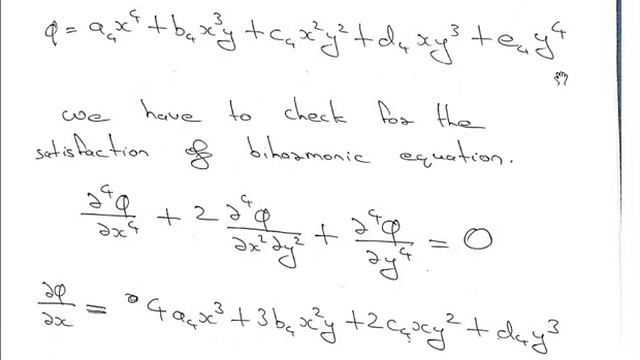 φ = a₄x⁴ + b₄x³y + c₄x²y² + d₄xy³ + e₄y⁴
we have to check for the
satisfaction of biharmonic equation.
∂⁴φ/∂x⁴ + 2 ∂⁴φ/∂x²∂y² + ∂⁴φ/∂y⁴ = 0
∂φ/∂x = 4a₄x³ + 3b₄x²y + 2c₄xy² + d₄y³